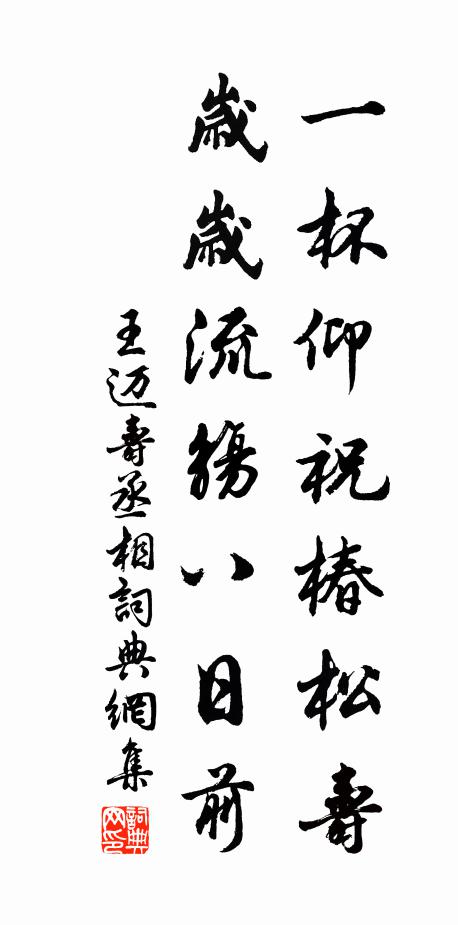 一杯仰祝椿松壽
歲歲流觴八日前
王迈壽丞相詞典網集
詞典网印